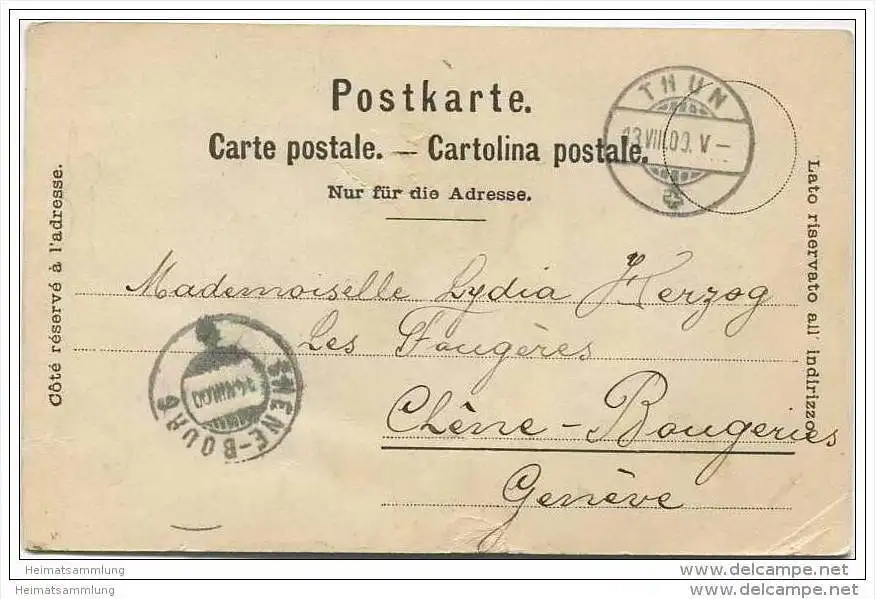 Postkarte.
Carte postale. — Cartolina postale.
Nur für die Adresse.
THUN
13.VIII.00. V —
Côté réservé à l'adresse.
Lato riservato all' indirizzo.
Mademoiselle Lydia Herzog
Les Fougères
Chêne-Bougeries
Genève
CHENE-BOURG
14.VIII.00
Heimatsammlung
Heimatsammlung
delcampe.net
delcampe.net